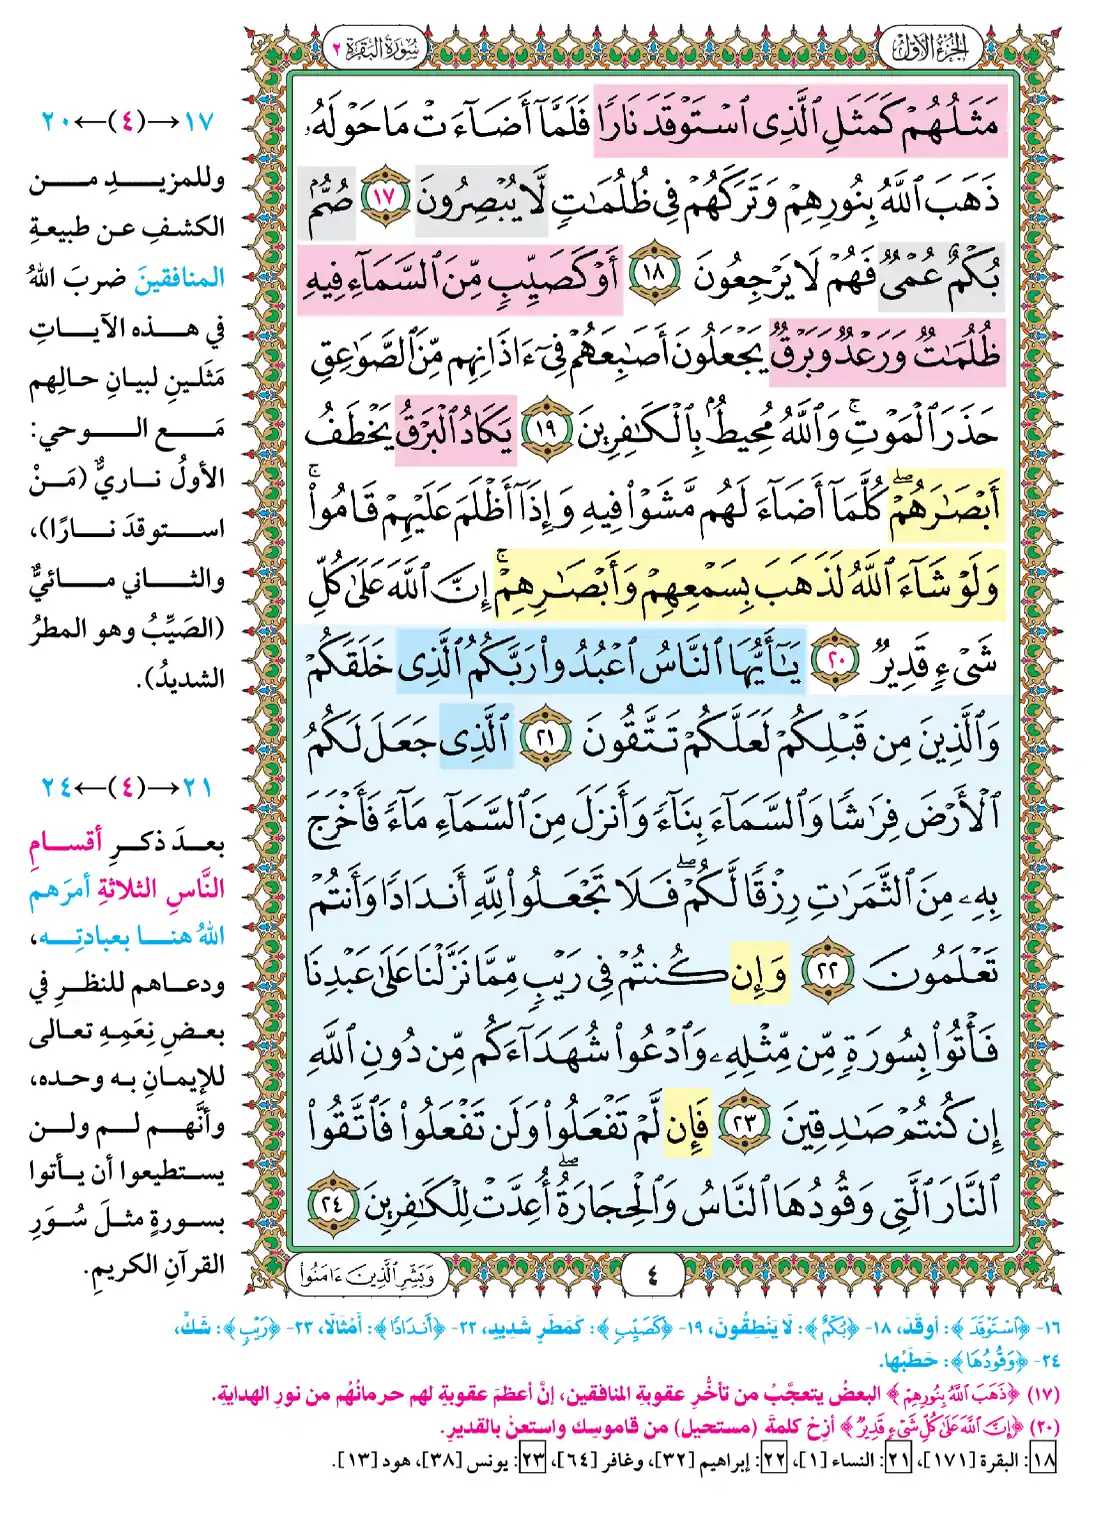 الجزء الأول
سورة البقرة ٢
مَثَلُهُمْ كَمَثَلِ ٱلَّذِى ٱسْتَوْقَدَ نَارًا فَلَمَّآ أَضَآءَتْ مَا حَوْلَهُۥ
ذَهَبَ ٱللَّهُ بِنُورِهِمْ وَتَرَكَهُمْ فِى ظُلُمَٰتٍ لَّا يُبْصِرُونَ ١٧ صُمٌّۢ
بُكْمٌ عُمْىٌ فَهُمْ لَا يَرْجِعُونَ ١٨ أَوْ كَصَيِّبٍ مِّنَ ٱلسَّمَآءِ فِيهِ
ظُلُمَٰتٌ وَرَعْدٌ وَبَرْقٌ يَجْعَلُونَ أَصَٰبِعَهُمْ فِىٓ ءَاذَانِهِم مِّنَ ٱلصَّوَٰعِقِ
حَذَرَ ٱلْمَوْتِ ۚ وَٱللَّهُ مُحِيطٌۢ بِٱلْكَٰفِرِينَ ١٩ يَكَادُ ٱلْبَرْقُ يَخْطَفُ
أَبْصَٰرَهُمْ ۖ كُلَّمَآ أَضَآءَ لَهُم مَّشَوْا۟ فِيهِ وَإِذَآ أَظْلَمَ عَلَيْهِمْ قَامُوا۟ ۚ
وَلَوْ شَآءَ ٱللَّهُ لَذَهَبَ بِسَمْعِهِمْ وَأَبْصَٰرِهِمْ ۚ إِنَّ ٱللَّهَ عَلَىٰ كُلِّ
شَىْءٍ قَدِيرٌ ٢٠ يَٰٓأَيُّهَا ٱلنَّاسُ ٱعْبُدُوا۟ رَبَّكُمُ ٱلَّذِى خَلَقَكُمْ
وَٱلَّذِينَ مِن قَبْلِكُمْ لَعَلَّكُمْ تَتَّقُونَ ٢١ ٱلَّذِى جَعَلَ لَكُمُ
ٱلْأَرْضَ فِرَٰشًا وَٱلسَّمَآءَ بِنَآءً وَأَنزَلَ مِنَ ٱلسَّمَآءِ مَآءً فَأَخْرَجَ
بِهِۦ مِنَ ٱلثَّمَرَٰتِ رِزْقًا لَّكُمْ ۖ فَلَا تَجْعَلُوا۟ لِلَّهِ أَندَادًا وَأَنتُمْ
تَعْلَمُونَ ٢٢ وَإِن كُنتُمْ فِى رَيْبٍ مِّمَّا نَزَّلْنَا عَلَىٰ عَبْدِنَا
فَأْتُوا۟ بِسُورَةٍ مِّن مِّثْلِهِۦ وَٱدْعُوا۟ شُهَدَآءَكُم مِّن دُونِ ٱللَّهِ
إِن كُنتُمْ صَٰدِقِينَ ٢٣ فَإِن لَّمْ تَفْعَلُوا۟ وَلَن تَفْعَلُوا۟ فَٱتَّقُوا۟
ٱلنَّارَ ٱلَّتِى وَقُودُهَا ٱلنَّاسُ وَٱلْحِجَارَةُ ۖ أُعِدَّتْ لِلْكَٰفِرِينَ ٢٤
٤
وَبَشِّرِ ٱلَّذِينَ ءَامَنُوا۟
١٧→(٤)←٢٠
وللمزيدِ من
الكشفِ عن طبيعةِ
المنافقينَ ضربَ اللهُ
في هذه الآياتِ
مَثَلينِ لبيانِ حالِهم
مَع الوحي:
الأولُ ناريٌّ (مَنْ
استوقدَ نارًا)،
والثاني مائيٌّ
(الصَيِّبُ وهو المطرُ
الشديدُ).
٢١→(٤)←٢٤
بعدَ ذكرِ أقسامِ
النَّاسِ الثلاثةِ أمرَهم
اللهُ هنا بعبادتِه،
ودعاهم للنظرِ في
بعضِ نِعَمِهِ تعالى
للإيمانِ به وحده،
وأنَّهم لم ولن
يستطيعوا أن يأتوا
بسورةٍ مثلَ سُوَرِ
القرآنِ الكريمِ.
١٦- ﴿ٱسْتَوْقَدَ﴾: أوقَدَ، ١٨- ﴿بُكْمٌ﴾: لَا يَنْطِقُونَ، ١٩- ﴿كَصَيِّبٍ﴾: كَمَطَرٍ شَدِيدٍ، ٢٢- ﴿أَندَادًا﴾: أَمْثَالًا، ٢٣- ﴿رَيْبٍ﴾: شَكٍّ،
٢٤- ﴿وَقُودُهَا﴾: حَطَبُها.
(١٧) ﴿ذَهَبَ ٱللَّهُ بِنُورِهِمْ﴾ البعضُ يتعجَّبُ من تأخُّرِ عقوبةِ المنافقين، إنَّ أعظمَ عقوبةٍ لهم حرمانُهُم من نورِ الهدايةِ.
(٢٠) ﴿إِنَّ ٱللَّهَ عَلَىٰ كُلِّ شَىْءٍ قَدِيرٌ﴾ أزِحْ كلمةَ (مستحيل) من قاموسِك واستعنْ بالقديرِ.
١٨: البقرة [١٧١]، ٢١: النساء [١]، ٢٢: إبراهيم [٣٢]، وغافر [٦٤]، ٢٣: يونس [٣٨]، هود [١٣].